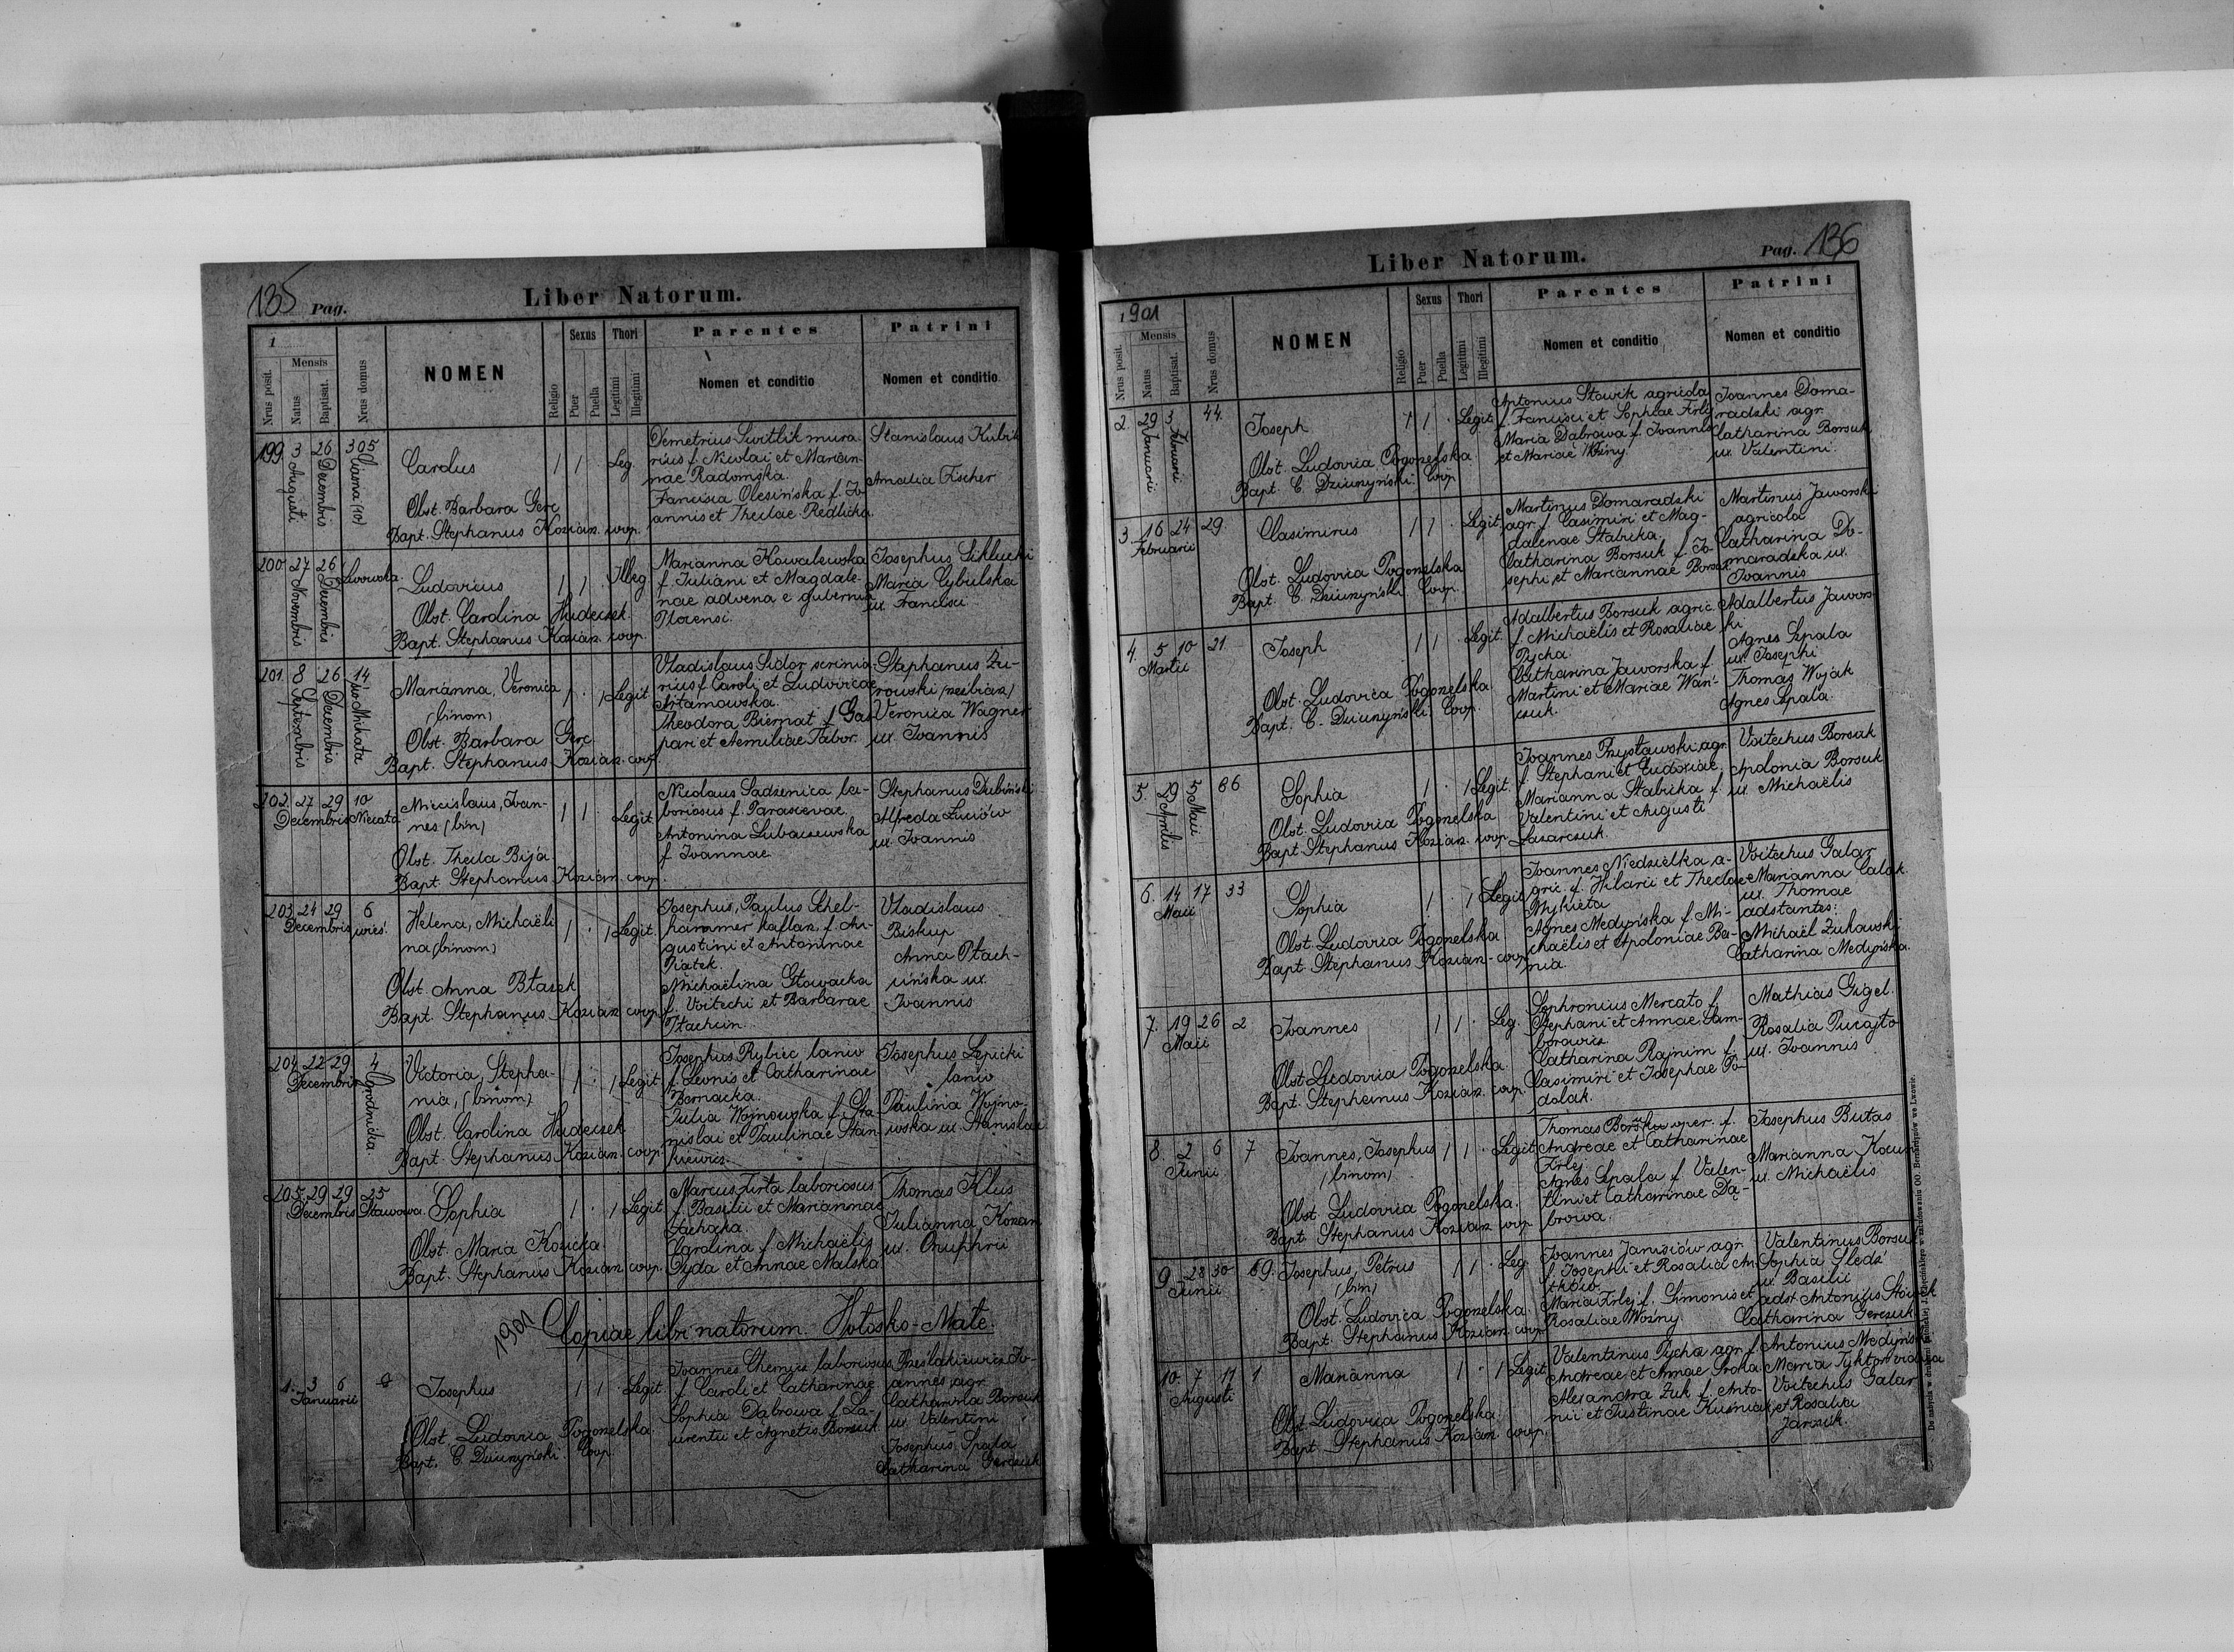 135 Pag.
Liber Natorum.
1
Nrus posit.
Mensis
Natus
Baptisat.
Nrus domus
NOMEN
Religio
Sexus
Puer
Puella
Thori
Legitimi
Illegitimi
Parentes
Nomen et conditio
Patrini
Nomen et conditio
199 3 Augusti 26 Decembris 305
Carolus
Leg.
Obst. Barbara Gerc
Bapt. Stephanus Kozian. coop.
Demetrius Switlik mura-
rius f. Nicolai et Marian-
nae Radomska.
Francisca Olesińska f. Jo-
annis et Theclae Redlicka.
Stanislaus Kubik
Amalia Fischer
200 27 Novembris 26 Decembris Lwowska.
Ludovicus
Illeg
Obst. Carolina Hudeczek.
Bapt. Stephanus Kozian. coop.
Marianna Kowalewska
f. Juliani et Magdale-
nae advena e gubernia
Plocensi.
Josephus
Maria Cybulska
ux. Francisci
201. 8 Septembris 26 Decembris 14 Michała
Marianna, Veronica
(binom)
Legit
Obst. Barbara Gerc
Bapt. Stephanus Kozian. coop.
Vladislaus Sidor scrinia-
rius f. Caroli et Ludovicae
Theodora Biernat f. Gas-
pari et Aemiliae Tabor.
Stephanus Żu-
rowski
Veronica Wagner
ux. Joannis
202. 27 29 Decembris 10
Miecislaus, Joan-
nes (bin)
Legit
Obst. Thecla Bija
Bapt. Stephanus Kozian. coop.
Nicolaus Sadzenica la-
boriosus f. Parascevae
Antonina Lubaczewska
f. Joannae
Stephanus Dubiński
Alfreda Luciów
ux. Joannis
203. 24 29 Decembris 6
Helena, Michaëli-
na (binom)
Legit.
Obst. Anna Błażek
Bapt. Stephanus Kozian. coop.
Josephus, Paulus Schel-
hammer kaflarz, f. Au-
gustini et Antoninae
Piątek.
Michaëlina Głowacka
f. Voitechi et Barbarae
Ptachcin.
Vladislaus
Biskup
Anna Ptach-
cińska ux.
Joannis
204. 22 29 Decembris 4 Ogrodnicka
Victoria, Stepha-
nia, (binom)
Legit
Obst. Carolina Hudeczek
Bapt. Stephanus Kozian. coop.
Josephus Rybiec lanio
f. Leonis et Catharinae
Bernacka.
Julia Wojnowska f. Sta-
nislai et Paulinae Stan-
kiewicz.
Josephus Lepicki
lanio
Paulina Wojno-
wska ux. Stanislai
205. 29 29 Decembris 25 Stawowa.
Sophia
Legit
Obst. Maria Kozicka
Bapt. Stephanus Kozian. coop.
Marcus Firta laboriosus
f. Basilii et Mariannae
Carolina f. Michaëlis
Pyda et Annae Malska
Thomas Klus
Julianna Kozan
ux. Onuphrii
1901 Copiae libri natorum. Hołosko-Małe.
1. 3 6 Januarii
Josephus
Legit.
Obst. Ludovica Pogonelska
Bapt. C. Dziurzyński. Coop.
Joannes Chemicz laboriosus
f. Caroli et Catharinae
Sophia Dąbrowa f. La-
urentii et Agnetis Borsuk
Przeslakiewicz Jo-
annes, agr.
Catharina Borsuk
ux. Valentini
Josephus Spala
Catharina Gerczuk
Liber Natorum.
Pag. 136
1901
Nrus posit.
Mensis
Natus
Baptisat.
Nrus domus
NOMEN
Religio
Sexus
Puer
Puella
Thori
Legitimi
Illegitimi
Parentes
Nomen et conditio
Patrini
Nomen et conditio
2. 29 Januarii 3 Februarii 44.
Joseph
Legit.
Obst. Ludovica Pogonelska
Bapt. C. Dziurzyński. Coop.
Antonius Słowik agricola
f. Francisci et Sophiae Firlej
Maria Dąbrowa f. Joannis
et Mariae Woźny.
Joannes Doma-
radzki agr.
Catharina Borsuk
ux. Valentini.
3. 16 24 Februarii 29.
Casimirus
Legit.
Obst. Ludovica Pogonelska
Bapt. C. Dziurzyński Coop.
Martinus Domaradzki
agr. f. Casimiri et Mag-
dalenae Stabicka.
Catharina Borsuk f. Jo-
sephi et Mariannae Borsuk.
Martinus Jaworski
agricola
Catharina Do-
maradzka ux.
Joannis
4. 5 10 Martii 21.
Joseph
Legit.
Obst. Ludovica Pogonelska
Bapt. C. Dziurzyński Coop.
Adalbertus Borsuk agric.
f. Michaëlis et Rosaliae
Pycha.
Catharina Jaworska f.
Martini et Mariae Wań-
czuk.
Adalbertus Jawor-
ski
Agnes Szpala
ux. Josephi
Thomas Wojak
Agnes Spala.
5. 29 Aprilis 5 Maii 86
Sophia
Legit.
Obst. Ludovica Pogonelska
Bapt. Stephanus Kozian. coop.
Joannes Przystawski agr.
f. Stephani et Eudoxiae.
Marianna Stabicka f.
Valentini et Augusti
Lazarczuk.
Voitechus Borsuk
Apolonia Borsuk
ux. Michaëlis
6. 14 17 Maii 33
Sophia
Legit
Obst. Ludovica Pogonelska
Bapt. Stephanus Kozian. coop.
Joannes Niedzielka a-
gric. f. Hilarii et Theclae
Mykieta
Agnes Medyńska f. Mi-
chaëlis et Apoloniae Ba-
nia.
Voitechus Galar
Marianna Calak
ux. Thomae
adstantes:
Michaël Żukowski
Catharina Medyńska.
7. 19 26 Maii 2
Joannes
Leg.
Obst. Ludovica Pogonelska.
Bapt. Stephanus Kozian. coop.
Sophronius Mercato f.
Stephani et Annae Sam-
borowicz
Catharina Rajnim f.
Casimiri et Josephae Po-
dolak.
Mathias Gigel.
Rosalia Pucajto
ux. Joannis
8. 2 6 Junii 7
Joannes, Josephus
(binom)
Legit.
Obst. Ludovica Pogonelska.
Bapt. Stephanus Kozian. coop.
Thomas Borsuk oper. f.
Andreae et Catharinae
Firlej
Agnes Szpala f. Valen-
tini et Catharinae Dą-
browa.
Josephus Butas
Marianna
ux. Michaëlis
9. 28 30 Junii 69.
Josephus, Petrus
(bin)
Leg.
Obst. Ludovica Pogonelska.
Bapt. Stephanus Kozian. coop.
Joannes Janisiów agr.
f. Josephi et Rosalia An-
tków.
Maria Firlej f. Simonis et
Rosaliae Woźny.
Valentinus Borsuk
Sophia Śledź
ux. Basilii
adst Antonius Słowik
Catharina Gerczuk
10. 7 17 Augusti 1
Marianna
Legit.
Obst. Ludovica Pogonelska.
Bapt. Stephanus Kozian. coop.
Valentinus Pycha agr. f.
Andreae et Annae Sroka.
Alexandra Żuk f. Anto-
nii et Justinae Kuśniak,
Antonius Medyński
Maria Tyktor vidua
Voitechus Galar
et Rosalia
Jarczuk.